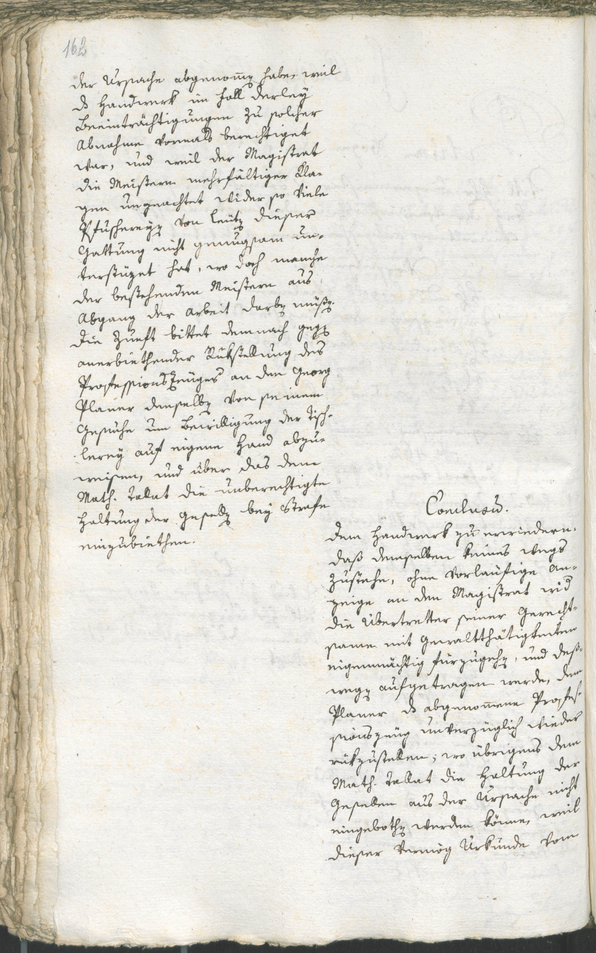 162
der Ursache abgenom̄en habe, weil
ds Handwerk im Fall derley
Beeinträchtigungen zu solcher
Abnahme vormals berechtiget
war, und weil der Magistrat
die Meistern mehrfältiger Kla-
gen ungeachtet wider so viele
Pfuschereyen von Leuten dieser
Gattung nicht genugsam un-
terstüzet hat, wo doch manche
der bestehenden Meistern aus
Abgang der Arbeit darben müßen.
Die Zunft bittet demnach gegen
anerbiethender Rükstellung des
Professionszeuges an den Georg
Planer denselben von seinem
Gesuche um Bewilligung der Tisch-
lerey auf eigene Hand abzu-
weisen, und über das dem
Math. Tallat die unberechtigte
Haltung der Gesellen bey Strafe
einzubiethen.
Conclusu.
Dem Handwerk zu erwiedern,
daß demselben keines wegs
zustehe, ohne vorläufige An-
zeige an den Magistrat wid
die Übertretter seiner Gerecht-
same mit Gewaltthätigkeiten
eigenmächtig fürzugehen, und deß-
wegen aufgetragen werde, dem
Planer ds abgenommene Profes-
sionszeug unverzüglich wieder
rükzustellen; wo übrigens dem
Math. Tallat die Haltung der
Gesellen aus der Ursache nicht
eingebothen werden könne, weil
dieser vermög Urkunde vom